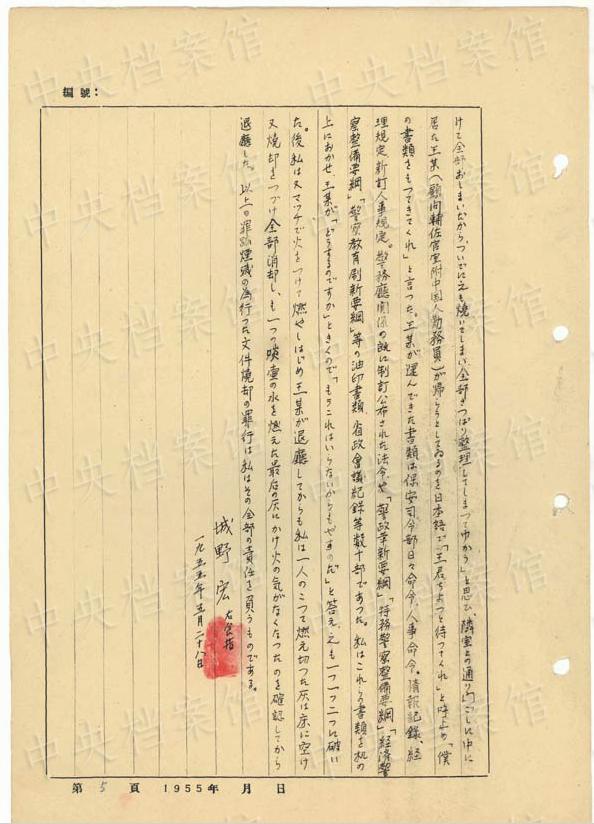 编號：
けて全部おしまいだから、ついでにこれも焼いてしまい全部さっぱり整理してしまってゆかう」と思ひ、隣室との通り口ごしに中に
居た王某（顧問輔佐官室附中国人勤務員）が帰らうとしてゐるのを日本語で「王君ちょっと待ってくれ」と呼止め「僕
の書類をもってきてくれ」と言った。王某が運んできた書類は保安司令部日々命令、人事命令。情報紀録、経
理規定新訂人事規定。警務廳関係の既に制訂公布された法令や「警政革新要綱」「特務警察整備要綱」「経済警
察整備要綱」「警察教育刷新要綱」等の油印書類、省政會議紀録等数十部であった。私はこれらの書類を机の
上におかせ王某が「どうするのですか」ときくので「もうこれはいらないからもやすのだ」と答え、之も一つ一つ二つに破い
た。後私は又マッチで火をつけて燃やしはじめ王某が退廳してからも私は一人のこって燃え切った灰は床に空け
又焼却をつづけ全部消却し、も一つの啖壷の水を燃えた最后の灰にかけ火の気がなくなったのを確認してから
退廳した。以上の罪跡煙滅の為行った文件焼却の罪行は私はその全部の責任を負うものである。
城野宏 右食指
一九五五年五月二十八日
第 5 頁 1955年 月 日
中央档案馆